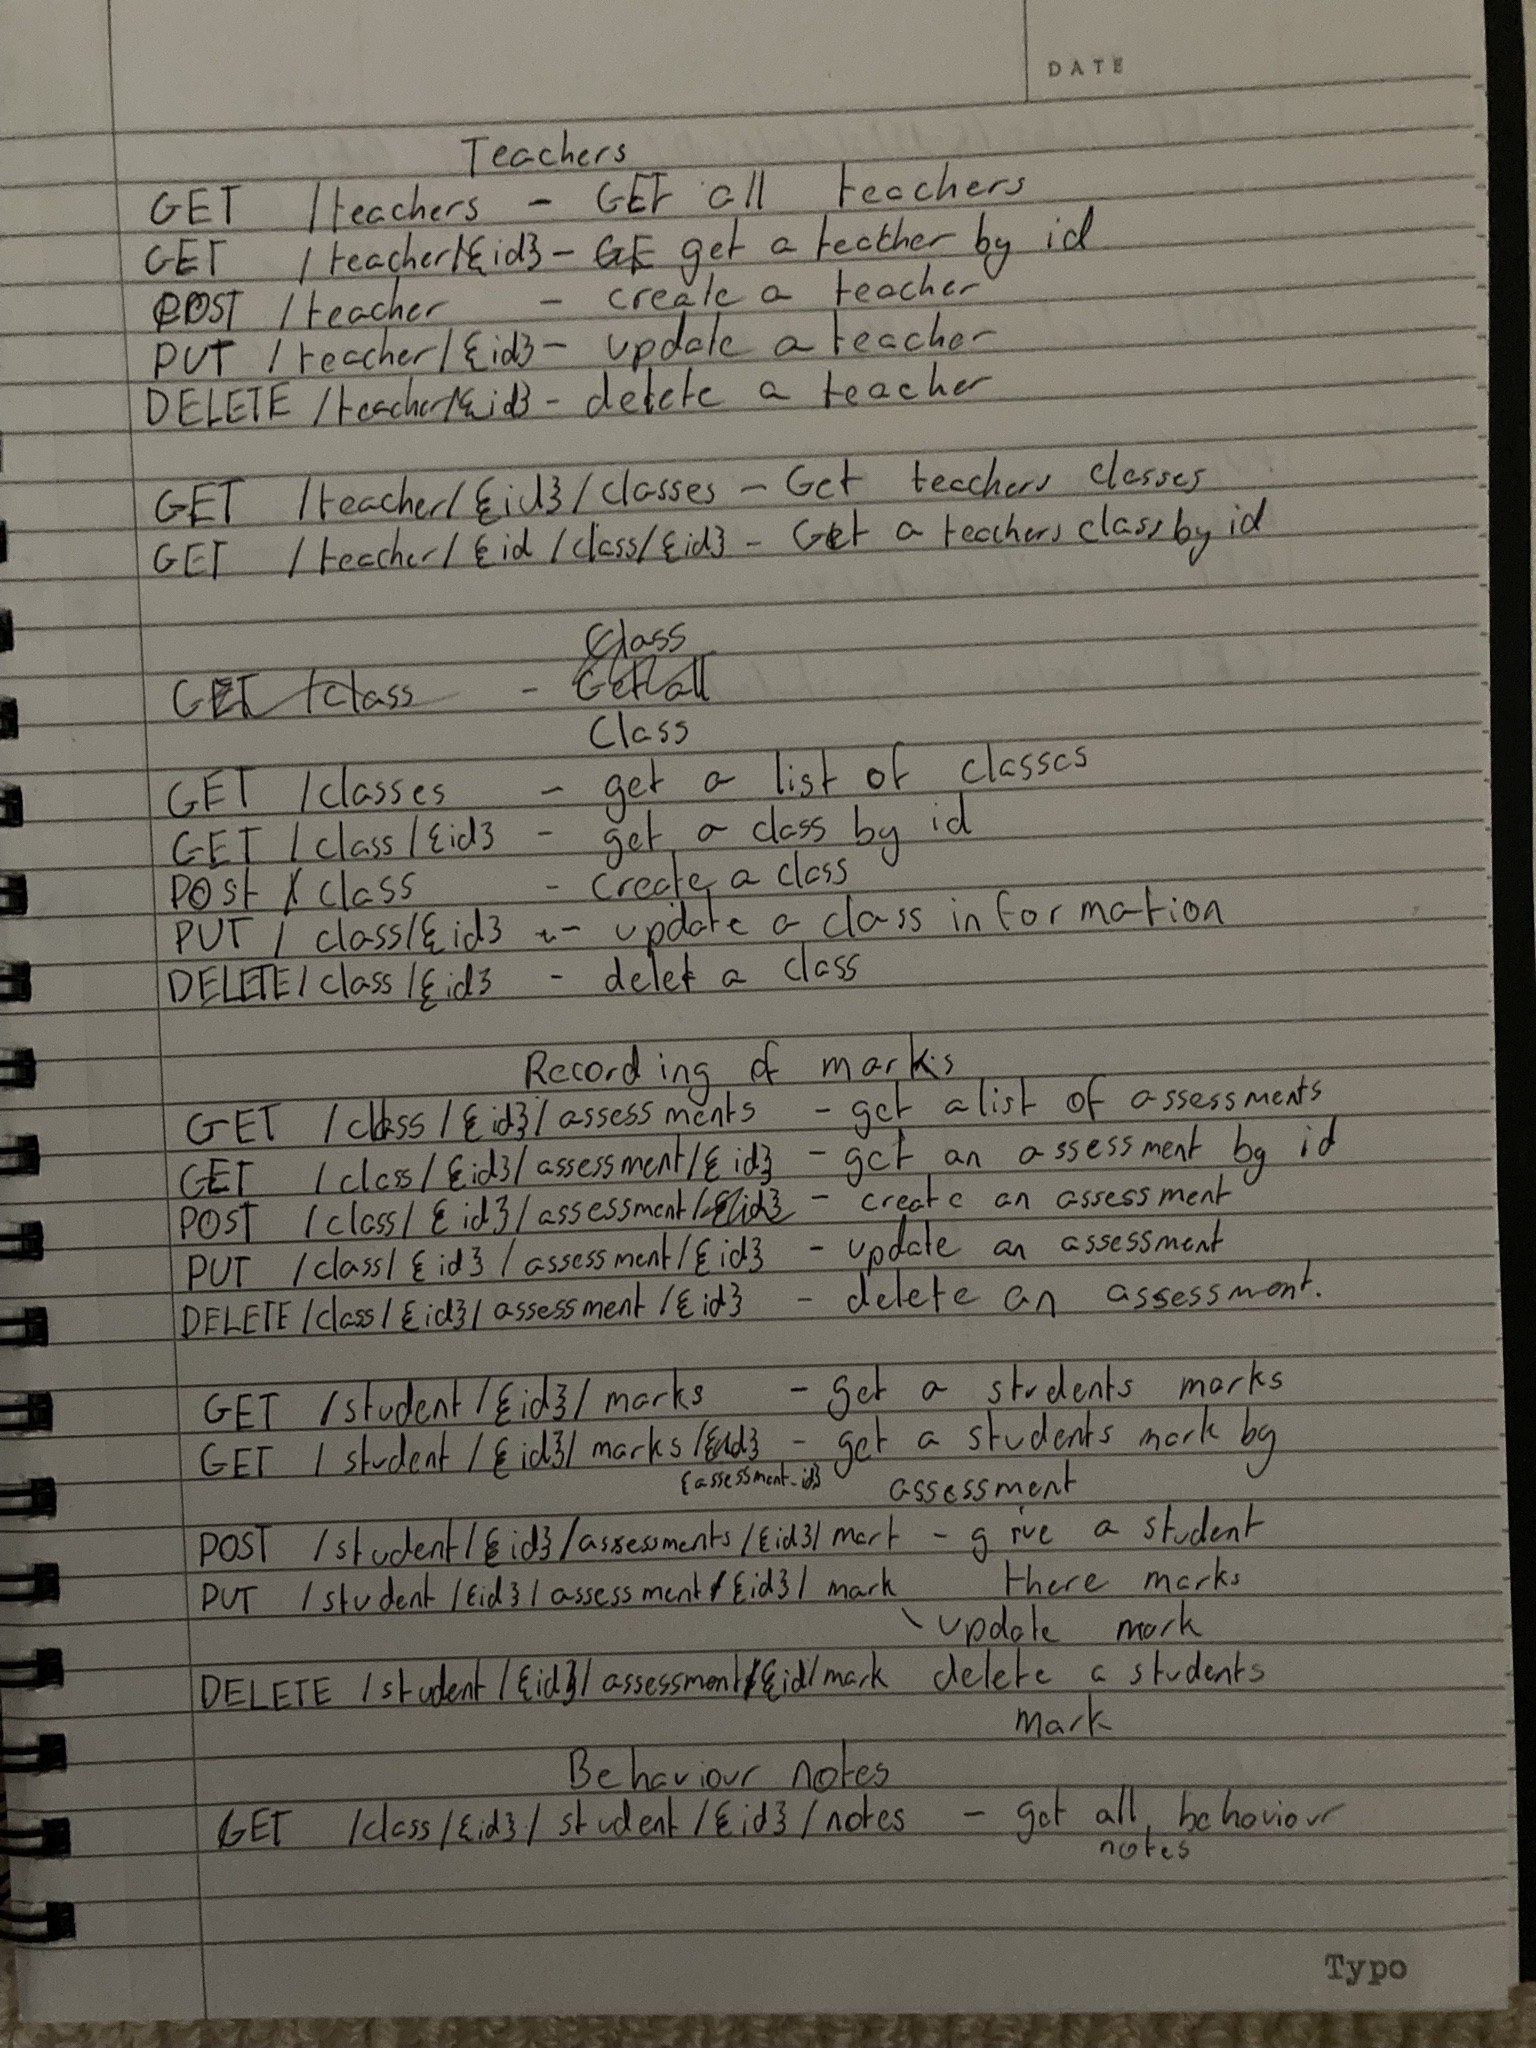 DATE
Teachers
GET /teachers - GET all teachers
GET /teacher/{id} - GE get a teather by id
POST /teacher - create a teacher
PUT /teacher/{id} - update a teacher
DELETE /teacher/{id} - delete a teacher
GET /teacher/{id}/classes - Get teachers classes
GET /teacher/{id /class/{id} - Get a teachers class by id
Class
GET /class - Get all
Class
GET /classes - get a list of classes
GET /class/{id} - get a class by id
POST /class - create a class
PUT / class/{id} - update a class information
DELETE/class/{id} - delet a class
Recording of marks
GET /class/{id}/assessments - get a list of assessments
GET /class/{id}/assessment/{id} - get an assessment by id
POST /class/{id}/assessment/{id} - create an assessment
PUT /class/{id}/assessment/{id} - update an assessment
DELETE/class/{id}/assessment/{id} - delete an assessment.
GET /student/{id}/marks - get a students marks
GET /student/{id}/marks/{id} - get a students mark by
{assessment_id} assessment
POST /student/{id}/assessments/{id}/mark - give a student
PUT /student/{id}/assessment/{id}/mark there marks
update mark
DELETE /student/{id}/assessment/{id/mark delete a students
mark
Behaviour notes
GET /class/{id}/student/{id}/notes - get all behaviour
notes
Typo